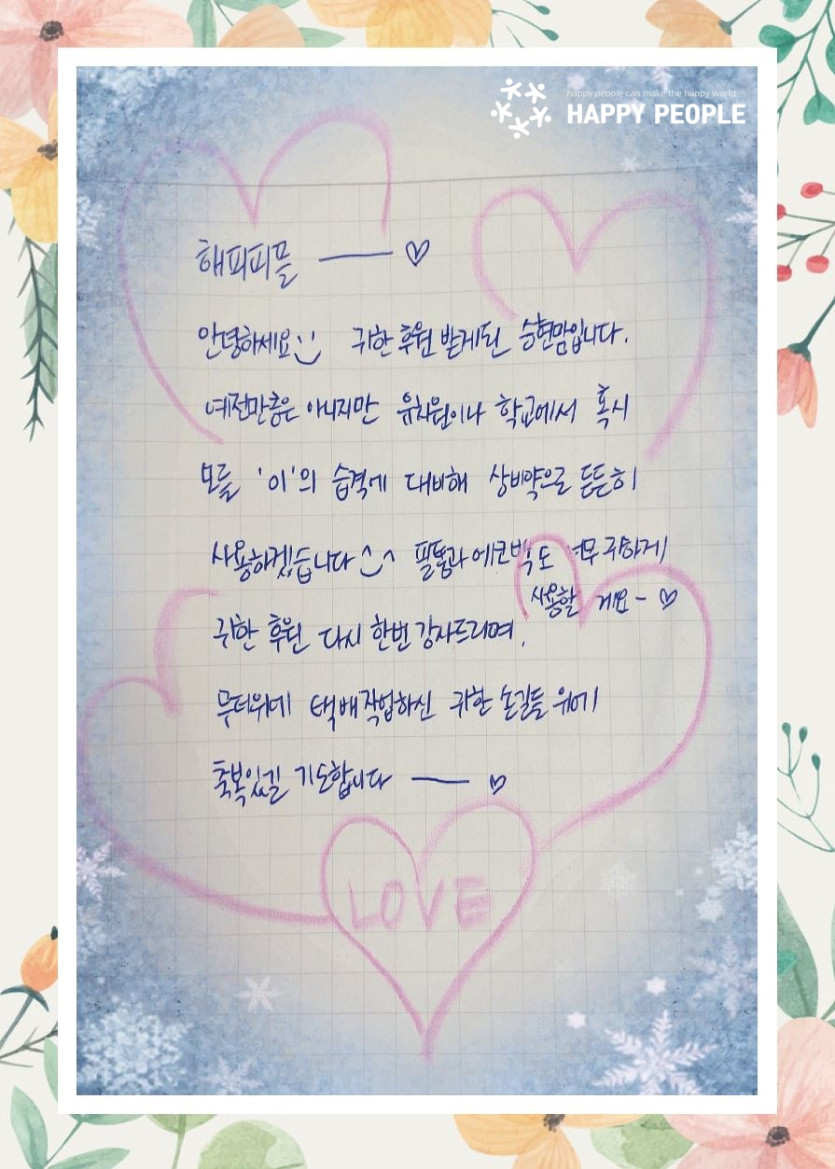 happy people can make the happy world
HAPPY PEOPLE
해피피플 ―― ♡
안녕하세요 귀한 후원 받게된 승현맘입니다.
예전만큼은 아니지만 유치원이나 학교에서 혹시
모를 '이'의 습격에 대비해 상비약으로 든든히
사용하겠습니다 ^_^ 필통과 에코백도 너무 귀하게
사용할 게요~ ♡
귀한 후원 다시 한번 감사드리며,
무더위에 택배작업하신 귀한 손길들 위에
축복있길 기도합니다 ―― ♡
LOVE